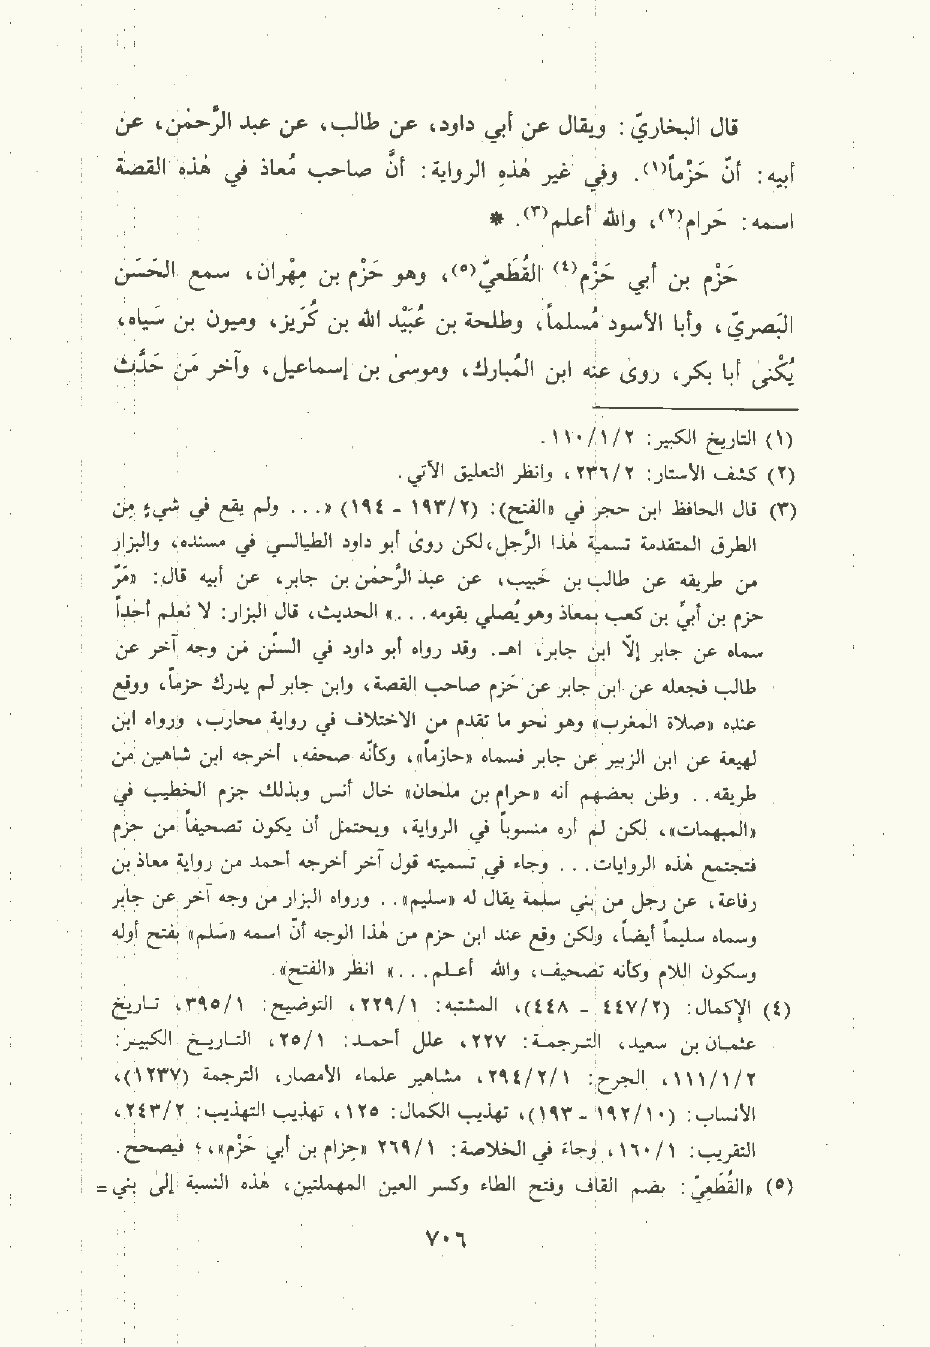 قال البخاريّ: ويقال عن أبي داود، عن طالب، عن عبد الرَّحمٰن، عن
أبيه: أنّ حَزْماً(١). وفي غير هٰذِهِ الرواية: أنَّ صاحب مُعاذ في هٰذه القصة
اسمه: حَرام(٢)، والله أعلم(٣). *
حَزْم بن أبي حَزْم(٤) القُطَعيّ(٥)، وهو حَزْم بن مِهْران، سمع الحَسَن
البَصريّ، وأبا الأسود مُسلماً، وطلحة بن عُبَيْد الله بن كُرَيز، وميمون بن سَياه،
يُكْنىٰ أبا بكر، روىٰ عنه ابن المُبارك، وموسىٰ بن إسماعيل، وآخر مَن حَدَّث
(١) التاريخ الكبير: ١١٠/١/٢.
(٢) كشف الأستار: ٢٣٦/٢، وانظر التعليق الآتي.
(٣) قال الحافظ ابن حجر في «الفتح): (١٩٣/٢ - ١٩٤) «... ولم يقع في شيءٍ مِن
الطرق المتقدمة تسمية هٰذا الرَّجل، لكن روىٰ أبو داود الطيالسي في مسنده، والبزار
من طريقه عن طالب بن حَبيب، عن عبد الرَّحمٰن بن جابر، عن أبيه قال: «مَرَّ
حزم بن أبيّ بن كعب بمعاذ وهو يُصلي بقومه...» الحديث، قال البزار: لا نعلم أحداً
سماه عن جابر إلّا ابن جابر، اهـ. وقد رواه أبو داود في السنَّن من وجه آخر عن
طالب فجعله عن ابن جابر عن حَزم صاحب القصة، وابن جابر لم يدرك حزماً، ووقع
عنده «صلاة المغرب» وهو نحو ما تقدم من الاختلاف في رواية محارب، ورواه ابن
لهيعة عن ابن الزبير عن جابر فسماه «حازماً»، وكأنّه صحفه، أخرجه ابن شاهين من
طريقه.. وظن بعضهم أنه «حرام بن ملحان» خال أنس وبذلك جزم الخطيب في
«المبهمات»، لكن لم أره منسوباً في الرواية، ويحتمل أن يكون تصحيفاً من حزم
فتجتمع هٰذه الروايات... وجاء في تسميته قول آخر أخرجه أحمد من رواية معاذ بن
رفاعة، عن رجل من بني سلمة يقال له «سليم».. ورواه البزار من وجه آخر عن جابر
وسماه سليماً أيضاً، ولكن وقع عند ابن حزم من هذا الوجه أنّ اسمه «سَلم» بفتح أوله
وسكون اللام وكأنه تصحيف، والله أعلم...» انظر «الفتح».
(٤) الإكمال: (٤٤٧/٢ - ٤٤٨)، المشتبه: ٢٢٩/١، التوضيح: ٣٩٥/١، تاريخ
عثمان بن سعيد، الترجمة: ٢٢٧، علل أحمد: ٢٥/١، التاريخ الكبير:
١١١/١/٢، الجرح: ٢٩٤/٢/١، مشاهير علماء الأمصار، الترجمة (١٢٣٧)،
الأنساب: (١٩٢/١٠ - ١٩٣)، تهذيب الكمال: ١٢٥، تهذيب التهذيب: ٢٤٣/٢،
التقريب: ١٦٠/١، وجاءَ في الخلاصة: ٢٦٩/١ «حِزام بن أبي حَزْم»، ؛ فيصحح.
(٥) «القُطَعِيّ: بضم القاف وفتح الطاء وكسر العين المهملتين، هٰذه النسبة إلىٰ بني=
٧٠٦